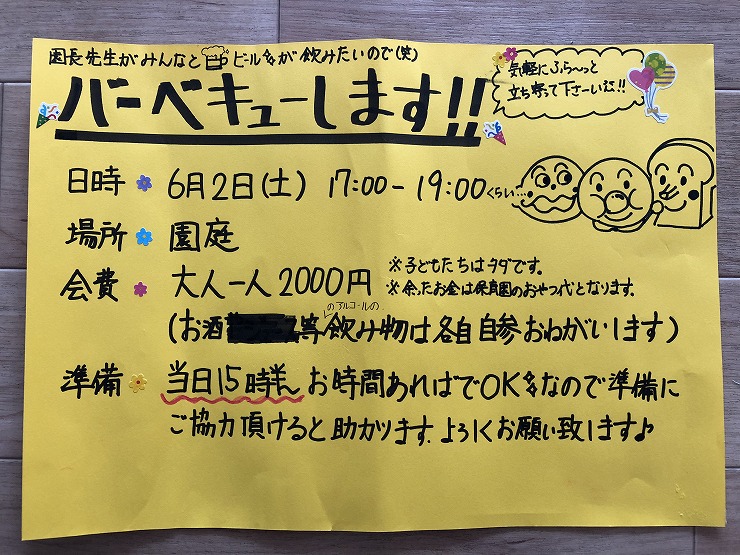 園長先生がみんなとビールが飲みたいので(笑)
バーベキューします!!
気軽にふら〜っと
立ち寄って下さーい!!
日時 6月2日(土) 17:00-19:00くらい…
場所 園庭
会費 大人一人2000円
※子どもたちはタダです。
※余ったお金は保育園のおやつ代となります。
のアルコールの
(お酒 等飲み物は各自自参おねがいします)
準備 当日15時半 お時間あればでOKなので準備に
ご協力頂けると助かります。よろしくお願い致します♪